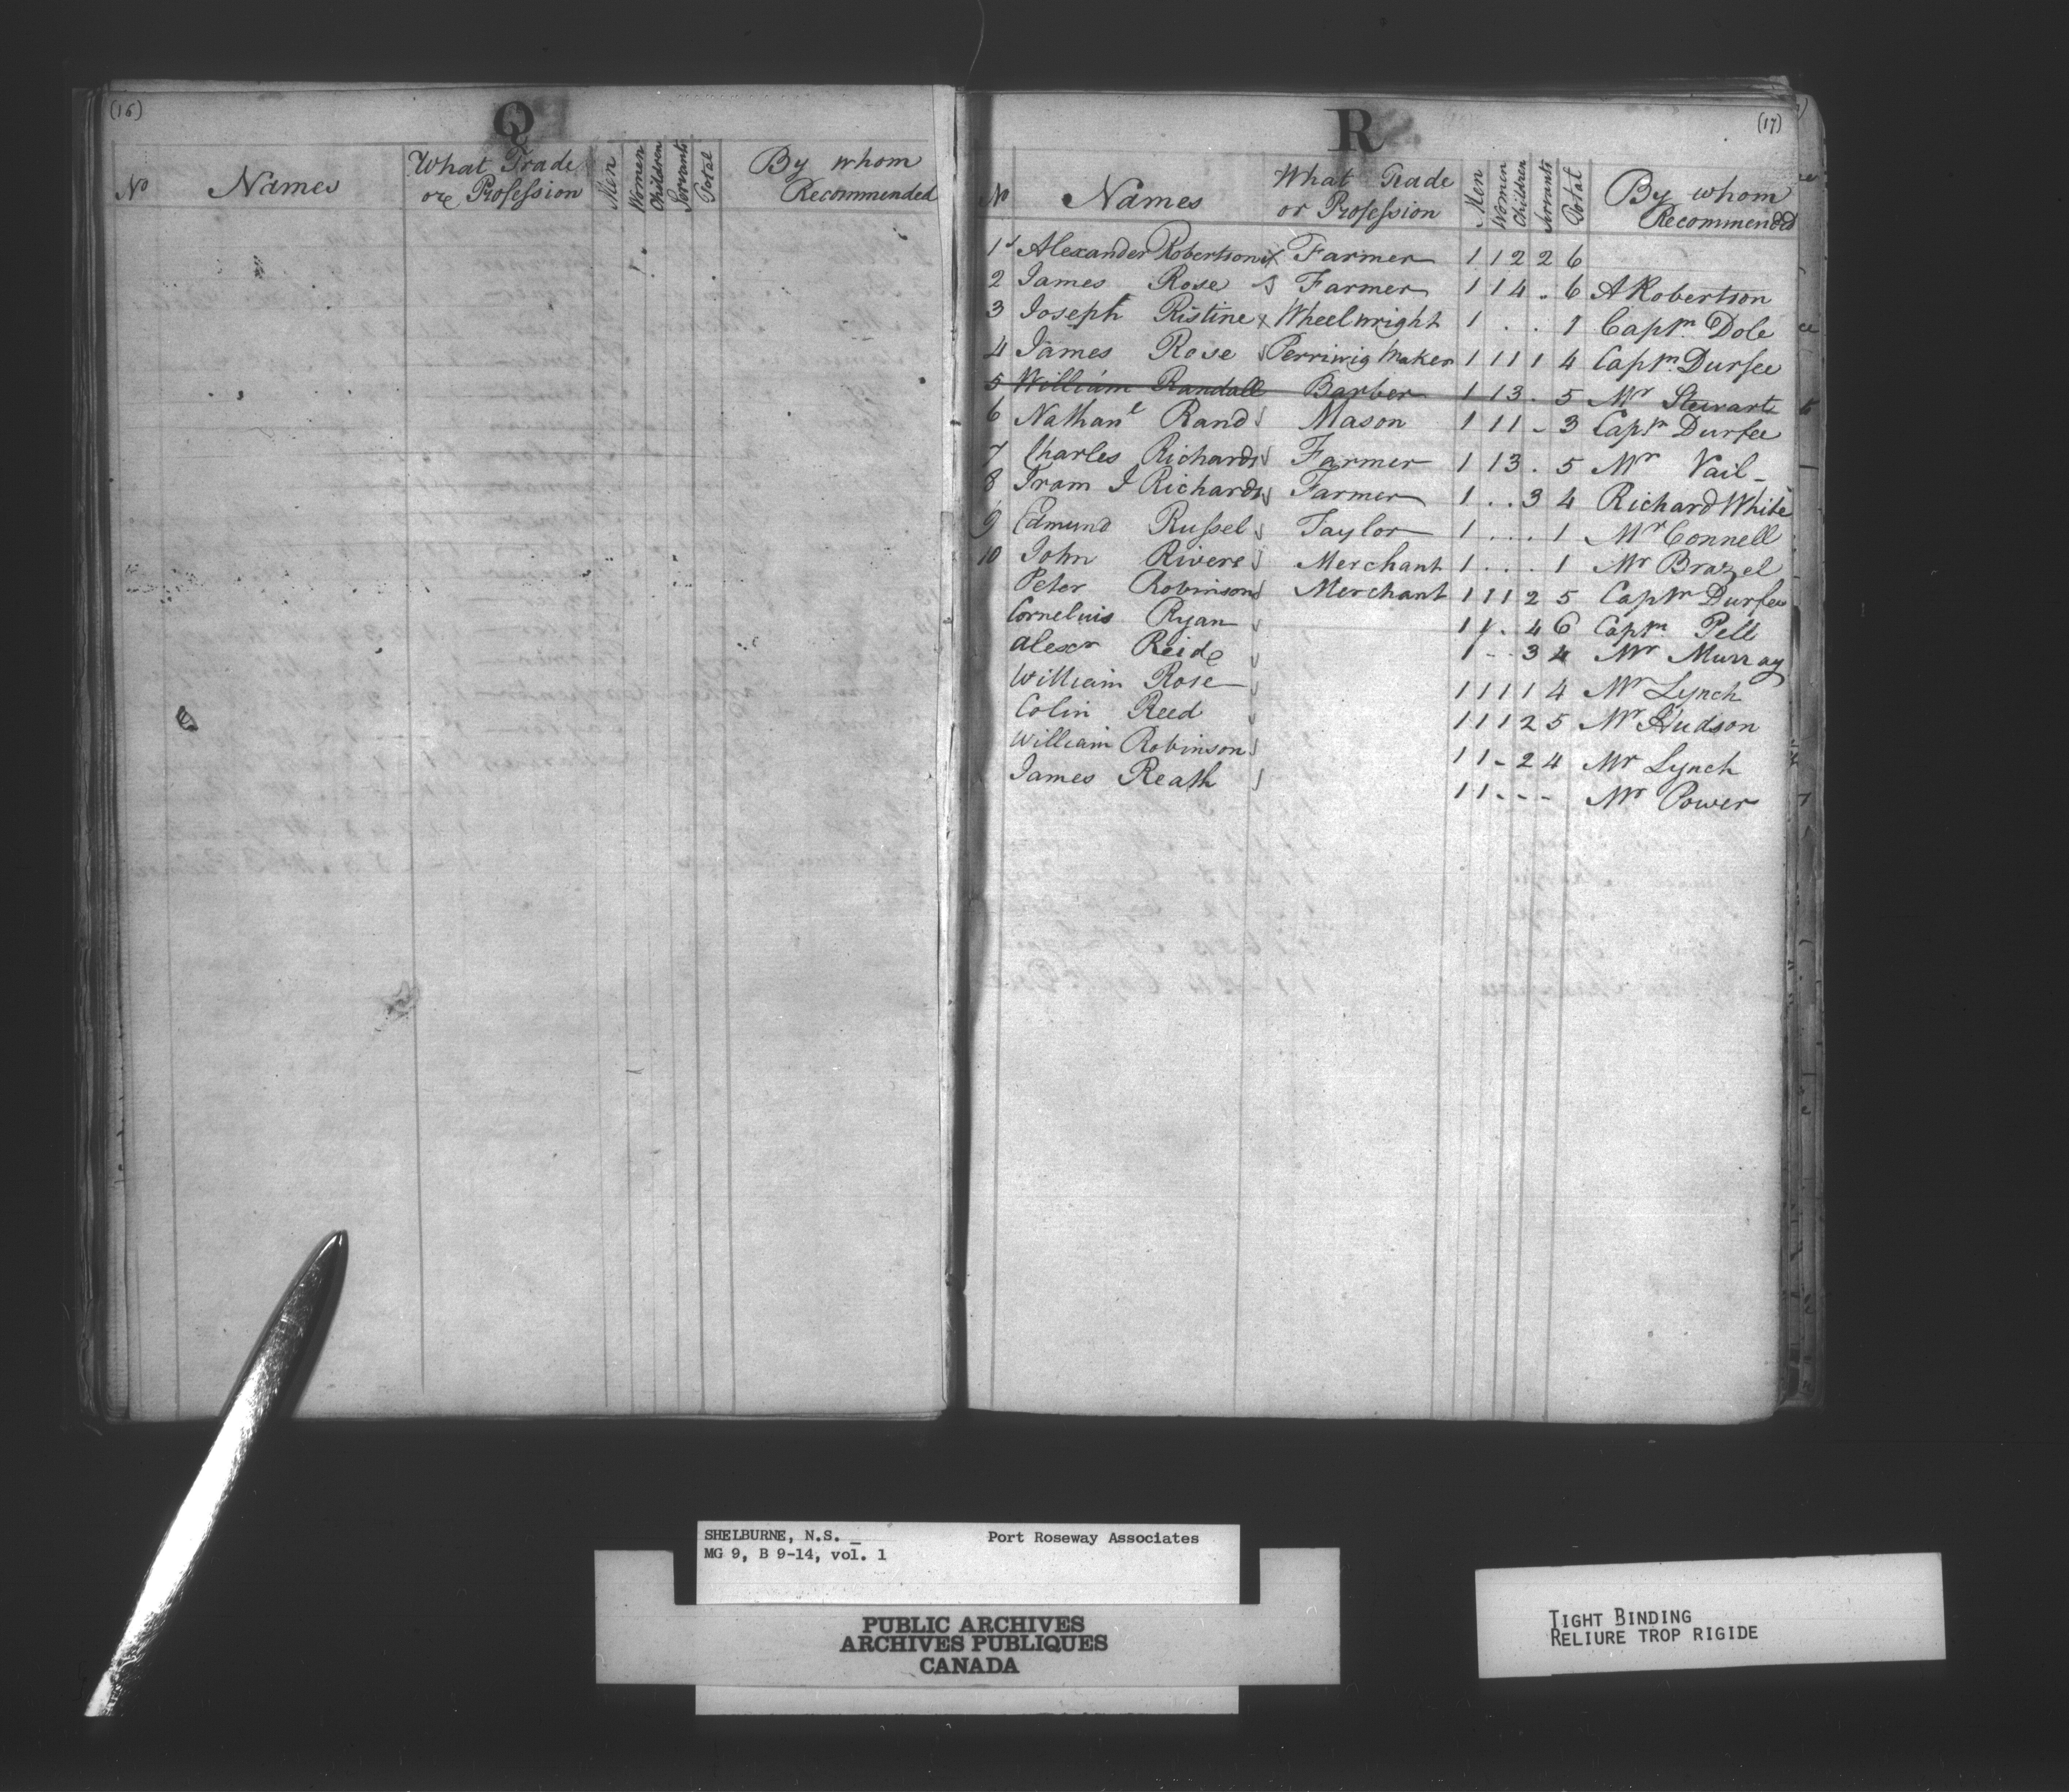 (16)
Q
No Names What Trade or Profession Men Women Children Servants Total By whom Recommended
R
(17)
No Names What Trade or Profession Men Women Children Servants Total By whom Recommended
1 Alexander Robertson x Farmer 1 1 2 2 6
2 James Rose Farmer 1 1 4 . 6 A Robertson
3 Joseph Ristine x Wheelwright 1 . . . 1 Captn. Dole
4 James Rose Perriwig Maker 1 1 1 1 4 Captn. Durfee
5 William Randall Barber 1 1 3 . 5 Mr Stewart
6 Nathanl Rand Mason 1 1 1 - 3 Captn Durfee
7 Charles Richards Farmer 1 1 3 . 5 Mr Vail
8 Iram I Richards Farmer 1 . . 3 4 Richard White
9 Edmund Russel Taylor 1 . . . 1 Mr Connell
10 John Rivers Merchant 1 . . . 1 Mr Brazel
Peter Robinson Merchant 1 1 1 2 5 Captn Durfee
Cornelius Ryan 1 1 . 4 6 Captn. Pell
Alexr Reid 1 - - 3 4 Mr Murray
William Rose 1 1 1 1 4 Mr Lynch
Colin Reed 1 1 1 2 5 Mr Hudson
William Robinson 1 1 - 2 4 Mr Lynch
James Reath 1 1 - - - Mr Power
SHELBURNE, N.S. Port Roseway Associates
MG 9, B 9-14, vol. 1
PUBLIC ARCHIVES
ARCHIVES PUBLIQUES
CANADA
TIGHT BINDING
RELIURE TROP RIGIDE